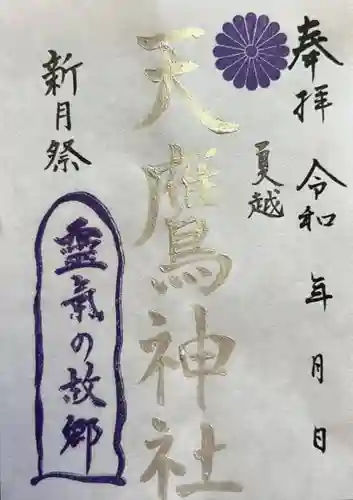 奉拝 令和 年 月 日
夏越
天鷹神社
新月祭
霊氣の故郷